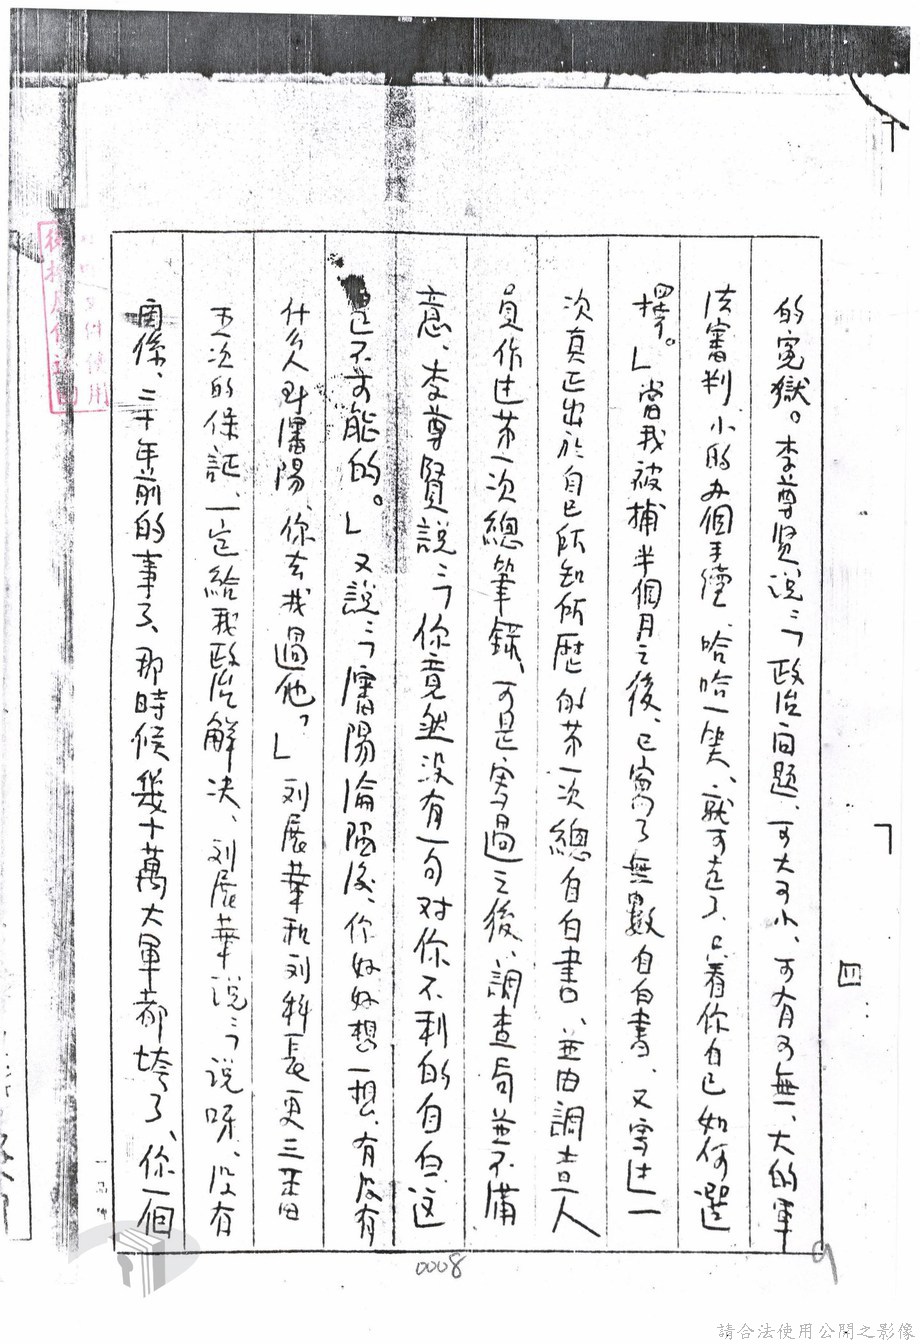 的冤獄。李尊贤说：「政治问题、可大可小、可有可無、大的軍
法審判、小的办個手續、哈哈一笑、就可走了、只看你自己如何選
擇。」當我被捕半個月之後、已寫了無數自白書、又写过一
次真正出於自己所知所歷的第一次總自白書、並由調查人
員作过第一次總筆錄、可是寫過之後、調查局並不滿
意、李尊賢說：「你竟然没有一句对你不利的自白这
是不可能的。」又說：「瀋陽淪陷後、你好好想一想、有没有
什么人到瀋陽、你去找過他？」刘展華和刘科長更三番
五次的保証、一定給我政治解决、刘展華说：「说呀、没有
関係、二十年前的事了、那時候幾十萬大軍都垮了、你一個
四
9
0008
請合法使用公開之影像